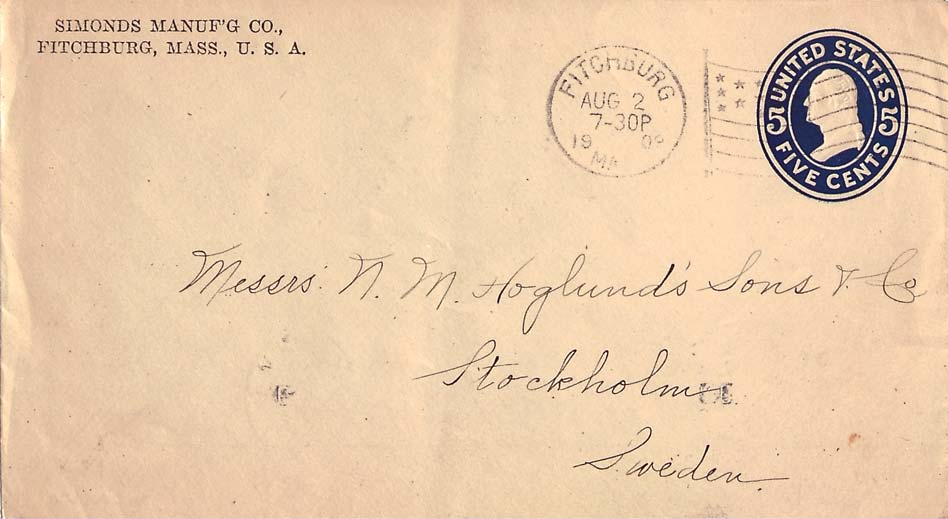 SIMONDS MANUF'G CO.,
FITCHBURG, MASS., U. S. A.
FITCHBURG
AUG 2
7-30P
19 09
MA
UNITED STATES
5 5
FIVE CENTS
Messrs. N. M. Hoglund's Sons & Co
Stockholm
Sweden.